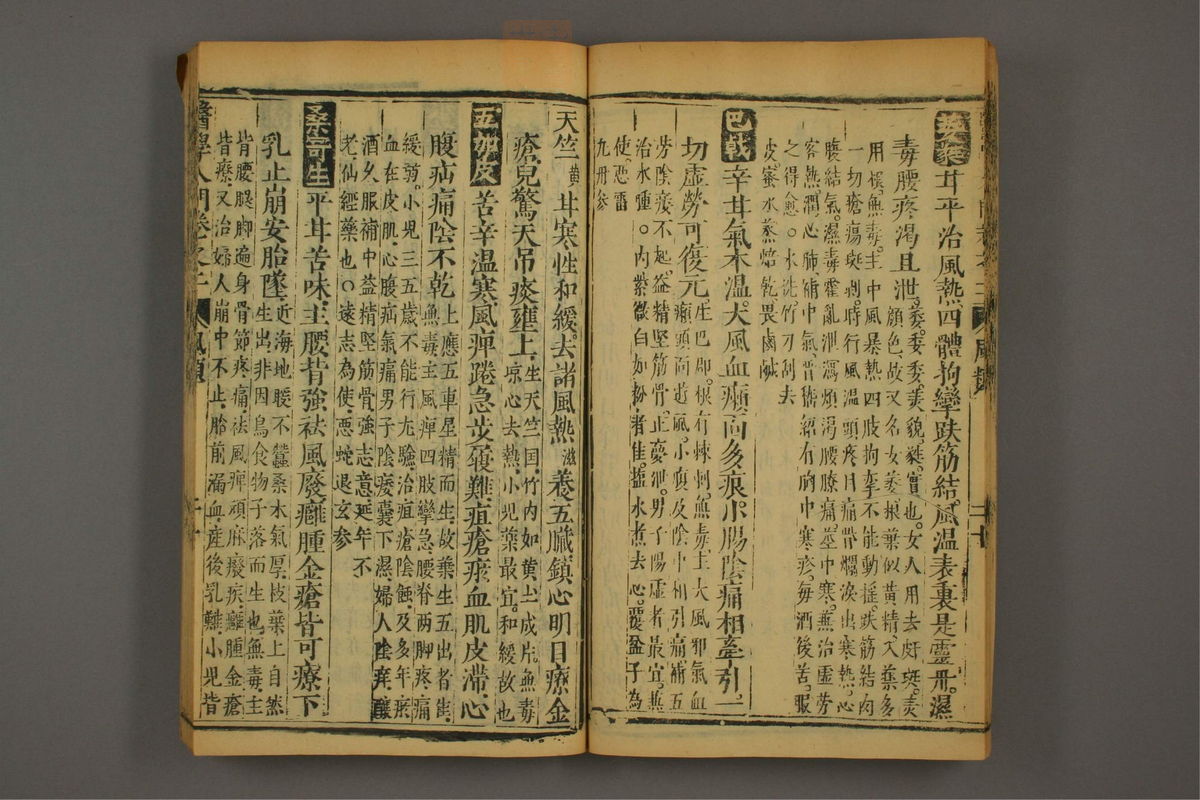 葳蕤 甘平治風熱四體拘攣跌筋結風温表裏是靈丹濕
毒腰疼渴且泄 葳委委蕤貌蕤實也女人用去皯斑美
顔色故又名女葳根葉似黄精入藥多
用根無毒主中風暴熱四肢拘攣不能動搖跌筋結肉
一切瘡瘍斑剥時行風温頭疼目痛眥爛淚出寒熱心
腹結氣濕毒霍亂泄瀉煩渴腰膝痛莖中寒兼治虚勞
客熱潤心肺補中氣昔嵇紹有胸中寒疹每酒後苦服
之得愈○水洗竹刀刮去
皮蜜水蒸焙乾畏鹵鹹
巴戟 辛甘氣本温大風血癩面多痕小腸陰痛相牽引一
切虚勞可復元 生巴郡根有棘刺無毒主大風邪氣血
癩頭面遊風小腹及陰中相引痛補五
勞陰痿不起益精堅筋骨正夢泄男子陽虚者最宜兼
治水腫○内紫微白如粉者佳鹽水煮去心覆盆子為
使惡雷
丸丹參
天竺黄 甘寒性和緩去諸風熱滋養五臟鎮心明目療金
瘡兒驚天吊痰壅上 生天竺国竹内如黄土成片無毒
凉心去熱小兒藥最宜和緩故也
五加皮 苦辛温寒風痺踡急步履難疽瘡瘀血肌皮滯心
腹疝痛陰不乾 上應五車星精而生故葉生五出者佳
無毒主風痺四肢攣急腰脊两脚疼痛
緩弱小兒三五歲不能行尤驗治疽瘡陰蝕及多年瘀
血在皮肌心腹疝氣痛男子陰痿囊下濕婦人陰痒釀
酒久服補中益精堅筋骨強志意延年不
老仙經藥也○遠志為使惡蛇退玄參
桑寄生 平甘苦味主腰背強祛風廢癰腫金瘡皆可療下
乳止崩安胎墜 近海地暖不蠶桑木氣厚枝葉上自然
生出非因鳥食物子落而生也無毒主
背腰腿脚遍身骨節疼痛祛風痺頑麻癈疾癰腫金瘡
昔療又治婦人崩中不止胎前漏血産後乳難小兒背
醫學入門卷之二 風類 二十